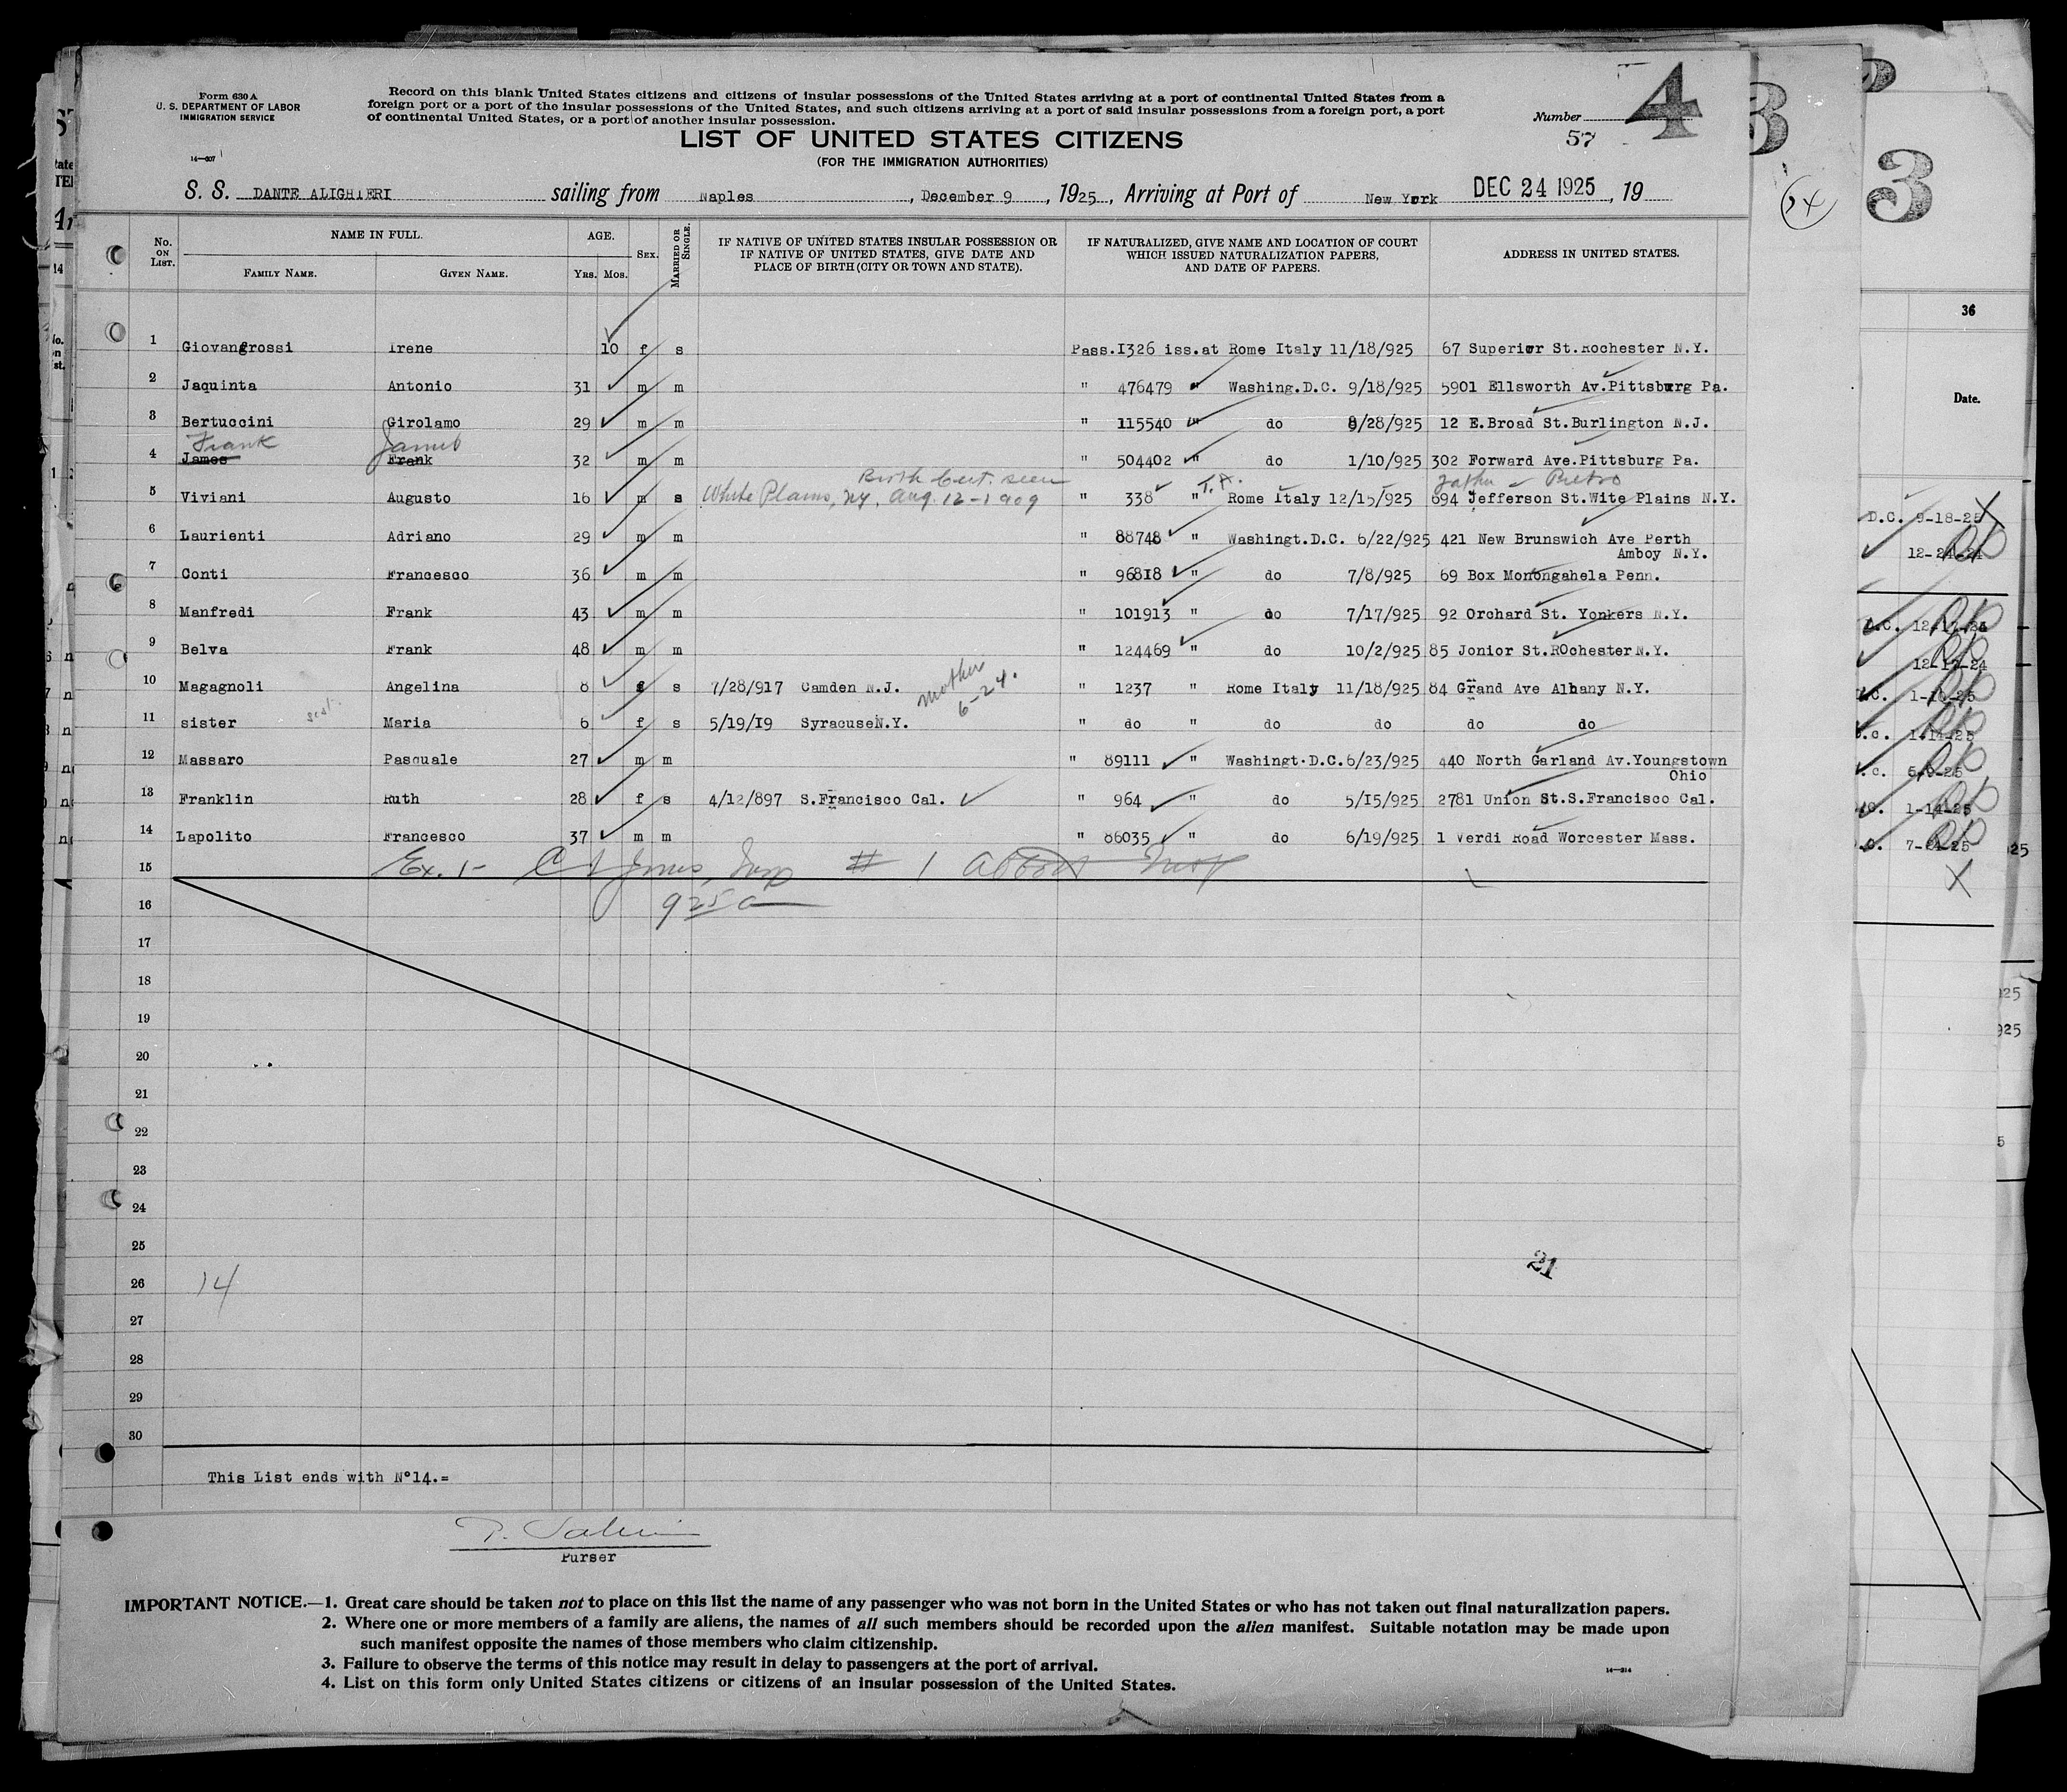 Form 630 A
U. S. DEPARTMENT OF LABOR
IMMIGRATION SERVICE
14—307
Record on this blank United States citizens and citizens of insular possessions of the United States arriving at a port of continental United States from a
foreign port or a port of the insular possessions of the United States, and such citizens arriving at a port of said insular possessions from a foreign port, a port
of continental United States, or a port of another insular possession.
Number 4
57
LIST OF UNITED STATES CITIZENS
(FOR THE IMMIGRATION AUTHORITIES)
S. S. DANTE ALIGHIERI sailing from Naples, December 9, 1925, Arriving at Port of New York DEC 24 1925, 19
No. ON LIST. NAME IN FULL. AGE. SEX. MARRIED OR SINGLE. IF NATIVE OF UNITED STATES INSULAR POSSESSION OR IF NATIVE OF UNITED STATES, GIVE DATE AND PLACE OF BIRTH (CITY OR TOWN AND STATE). IF NATURALIZED, GIVE NAME AND LOCATION OF COURT WHICH ISSUED NATURALIZATION PAPERS, AND DATE OF PAPERS. ADDRESS IN UNITED STATES.
FAMILY NAME. GIVEN NAME. YRS. MOS.
1 Giovangrossi Irene 10 f s Pass.I326 iss.at Rome Italy 11/18/925 67 Superior St.Rochester N.Y.
2 Jaquinta Antonio 31 m m " 476479 " Washing.D.C. 9/18/925 5901 Ellsworth Av.Pittsburg Pa.
3 Bertuccini Girolamo 29 m m " 115540 " do 9/28/925 12 E.Broad St.Burlington N.J.
Frank James
4 James Frank 32 m m " 504402 " do 1/10/925 302 Forward Ave.Pittsburg Pa.
Birth Cert. seen T.P. father - Pietro
5 Viviani Augusto 16 m s White Plains, NY, Aug. 12-1909 " 338 " Rome Italy 12/15/925 694 Jefferson St.Wite Plains N.Y.
6 Laurienti Adriano 29 m m " 88748 " Washingt.D.C. 6/22/925 421 New Brunswich Ave Perth
Amboy N.Y.
7 Conti Francesco 36 m m " 96818 " do 7/8/925 69 Box Monongahela Penn.
8 Manfredi Frank 43 m m " 101913 " do 7/17/925 92 Orchard St. Yonkers N.Y.
9 Belva Frank 48 m m " 124469 " do 10/2/925 85 Jonior St.ROchester N.Y.
10 Magagnoli Angelina 8 f s 7/28/917 Camden N.J. mother 6-24. " 1237 " Rome Italy 11/18/925 84 Grand Ave Albany N.Y.
11 sister Maria 6 f s 5/19/I9 SyracuseN.Y. " do " do do do do
12 Massaro Pascuale 27 m m " 89111 " Washingt.D.C.6/23/925 440 North Garland Av.Youngstown
Ohio
13 Franklin Ruth 28 f s 4/12/897 S.Francisco Cal. " 964 " do 5/I5/925 2781 Union St.S.Francisco Cal.
14 Lapolito Francesco 37 m m " 86035 " do 6/19/925 1 Verdi Road Worcester Mass.
15 Ex. 1- # 1
16 925 a
17
18
19
20
21
22
23
24
25
21
26 14
27
28
29
30
This List ends with N°14.=
Purser
IMPORTANT NOTICE.—1. Great care should be taken not to place on this list the name of any passenger who was not born in the United States or who has not taken out final naturalization papers.
2. Where one or more members of a family are aliens, the names of all such members should be recorded upon the alien manifest. Suitable notation may be made upon
such manifest opposite the names of those members who claim citizenship.
3. Failure to observe the terms of this notice may result in delay to passengers at the port of arrival.
4. List on this form only United States citizens or citizens of an insular possession of the United States.
14—314
3
3
36
Date.
D.C. 9-18-25
12-24-24
12-17-24
12-17-24
1-10-25
1-14-25
5-9-25
1-14-25